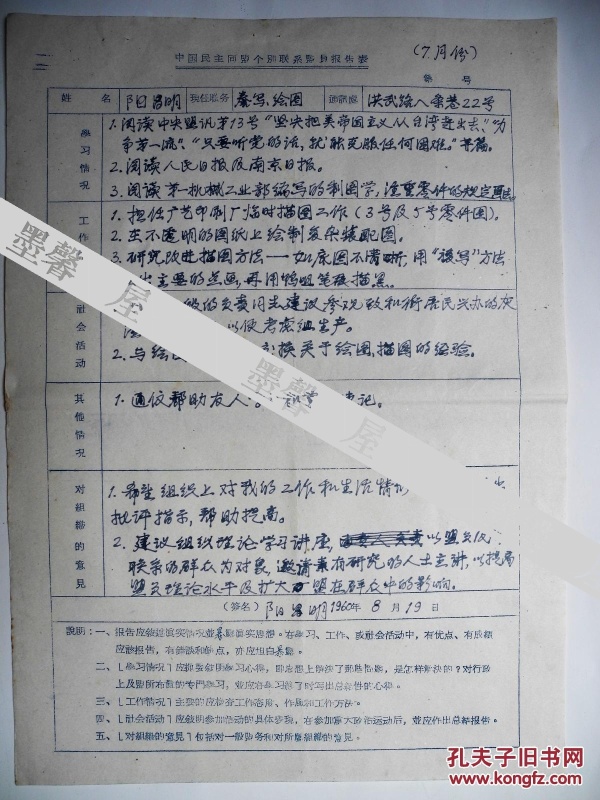 中国民主同盟个别联系盟员报告表
(7月份)
编号
姓名 阳昌明 我任职务 誊写、绘图 通讯处 洪武路八条巷22号
学习情况
1. 阅读中央盟讯第13号“坚决把美帝国主义从台湾赶出去”、“力
争第一流”、“只要听党的话,就能克服任何困难。”等篇。
2. 阅读人民日报及南京日报。
3. 阅读第一机械工业部编写的制图学,注重零件的规定画法。
工作
1. 担任广艺印刷厂临时描图工作(3号及5号零件图)。
2. 在不透明的图纸上绘制复杂装配图。
3. 研究改进描图方法——如底图不清晰,用“复写”方法
出主要的点画,再用鸭咀笔描黑。
社会活动
的负责同志建议参观致和街居民兴办的
以便考虑组生产。
2. 与绘 换关于绘图、描图的经验。
其他情况
1. 通信帮助友人 记。
对组织的意见
1. 希望组织上对我的工作和生活情
批评指示,帮助提高。
2. 建议组织理论学习讲座,以盟员及
联系的群众为对象,邀请素有研究的人士主讲,以提高
盟员理论水平及扩大盟在群众中的影响。
(签名) 阳昌明 1960年8月19日
说明:一、报告应叙述真实情况并暴露真实思想。在学习、工作、或社会活动中,有优点、有成绩
应该报告,有缺点和缺点,亦应坦白暴露。
二、「学习情况」应扼要叙明学习心得,即思想上解决了那些问题,是怎样解决的?对行政
上及盟所布置的专门学习,并应在学习终了时写出总结性的心得。
三、「工作情况」主要的应检查工作态度、作风和工作方法。
四、「社会活动」应叙明参加活动的具体步骤,在参加重大政治运动后,并应作出总结报告。
五、「对组织的意见」包括对一般盟务和对所属组织的意见。
墨馨屋
墨馨屋
孔夫子旧书网
www.kongfz.com